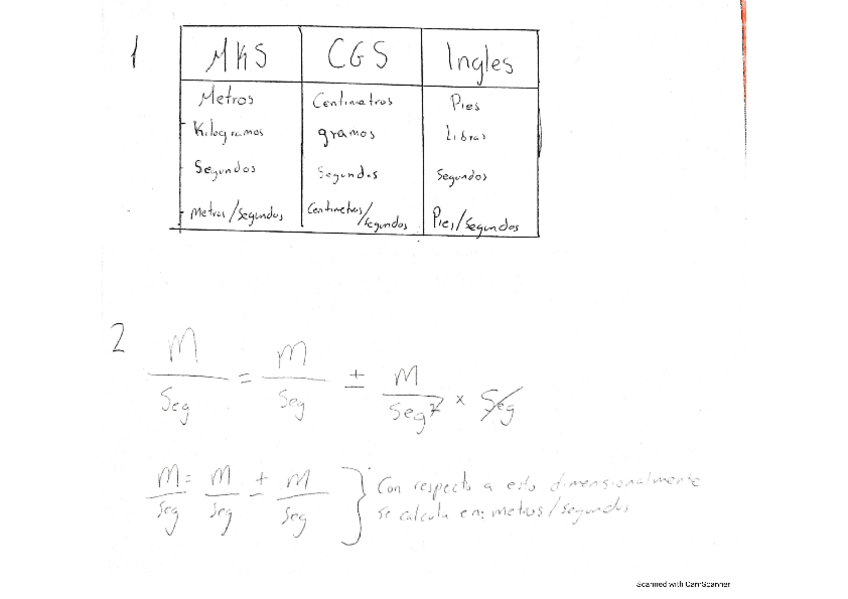 1
MKS CGS Ingles
Metros Centimetros Pies
Kilogramos gramos Libras
Segundos Segundos Segundos
Metros/segundos Centimetros/segundos Pies/segundos
2
M/Seg = M/Seg ± M/Seg² × Seg
M/Seg = M/Seg ± M/Seg } Con respecto a esto dimensionalmente
se calcula en: metros/segundos
Scanned with CamScanner